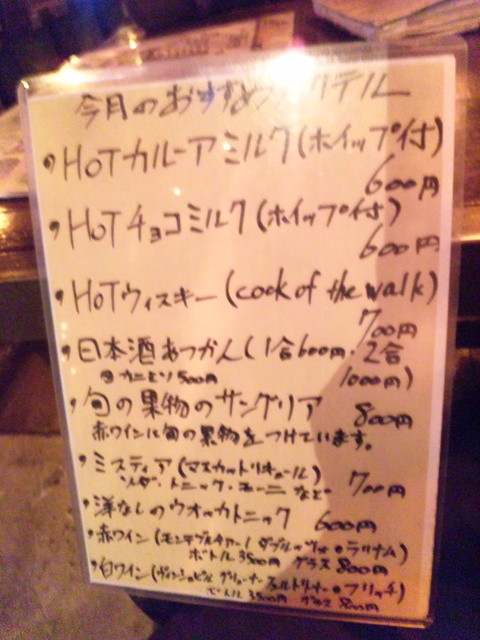 今月のおすすめカクテル
・HOTカルーアミルク(ホイップ付)
600円
・HOTチョコミルク(ホイップ付)
600円
・HOTウィスキー(cook of the walk)
700円
・日本酒あつかん(1合600円・2合
カニミソ500円 1000円)
・旬の果物のサングリア 800円
赤ワインに旬の果物をつけています。
・ミスティア(マスカットリキュール)
ソーダ・トニック・モーニ など 700円
・洋なしのウオッカトニック 600円
・赤ワイン(モンテプルチアーノ
ボトル3500円 グラス800円
・白ワイン(
ボトル3500円 グラス800円